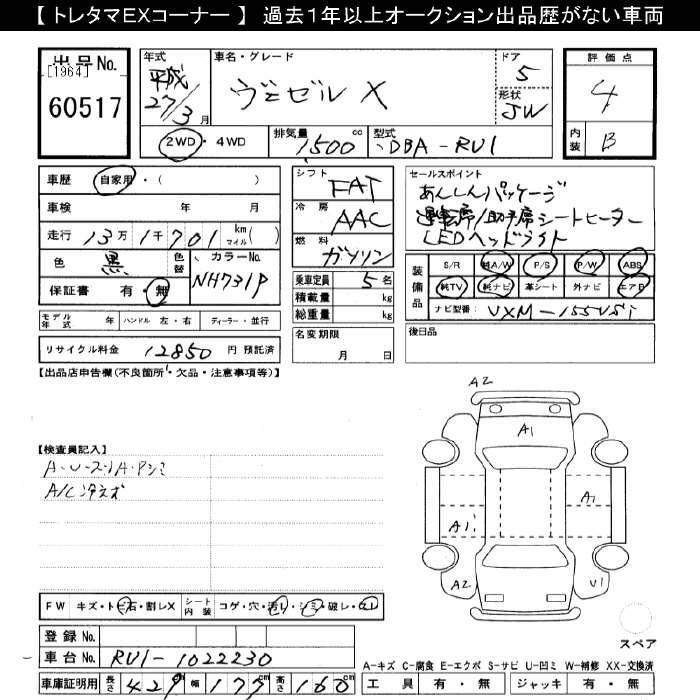 【 トレタマEXコーナー 】 過去１年以上オークション出品歴がない車両
出品No.
[1964]
60517
年式
平成
27/3月
車名・グレード
ヴェゼル X
ドア
5
形状
JW
評価点
4
内装
B
2WD・4WD
排気量
1500cc
型式
DBA-RU1
車歴
自家用・( )
車検 年 月
走行 13万1千701 km(マイル)
色
黒
色替
カラーNo.
NH731P
保証書 有・無
シフト
FAT
冷房
AAC
燃料
ガソリン
乗車定員 5名
積載量 kg
総重量 kg
セールスポイント
あんしんパッケージ
運転席/助手席シートヒーター
LEDヘッドライト
装備品
S/R 純A/W P/S P/W ABS
純TV 純ナビ 革シート 外ナビ エアB
ナビ型番: VXM-155VSi
モデル年式 年 ハンドル 左・右 ディーラー・並行
名変期限
月 日
後日品
リサイクル料金 12850 円 預託済
【出品店申告欄(不良箇所・欠品・注意事項等)】
【検査員記入】
FW キズ・トビ石・割レX
シート内装 コゲ・穴・汚レ・シミ・破レ・スレ
A2
A1
A1
A1
A2
U1
スペア
登録No.
車台No. RU1-1022230
車庫証明用 長さ 429 幅 177 高さ 160 cm
A-キズ C-腐食 E-エクボ S-サビ U-凹ミ W-補修 XX-交換済
工具 有・無 ジャッキ 有・無